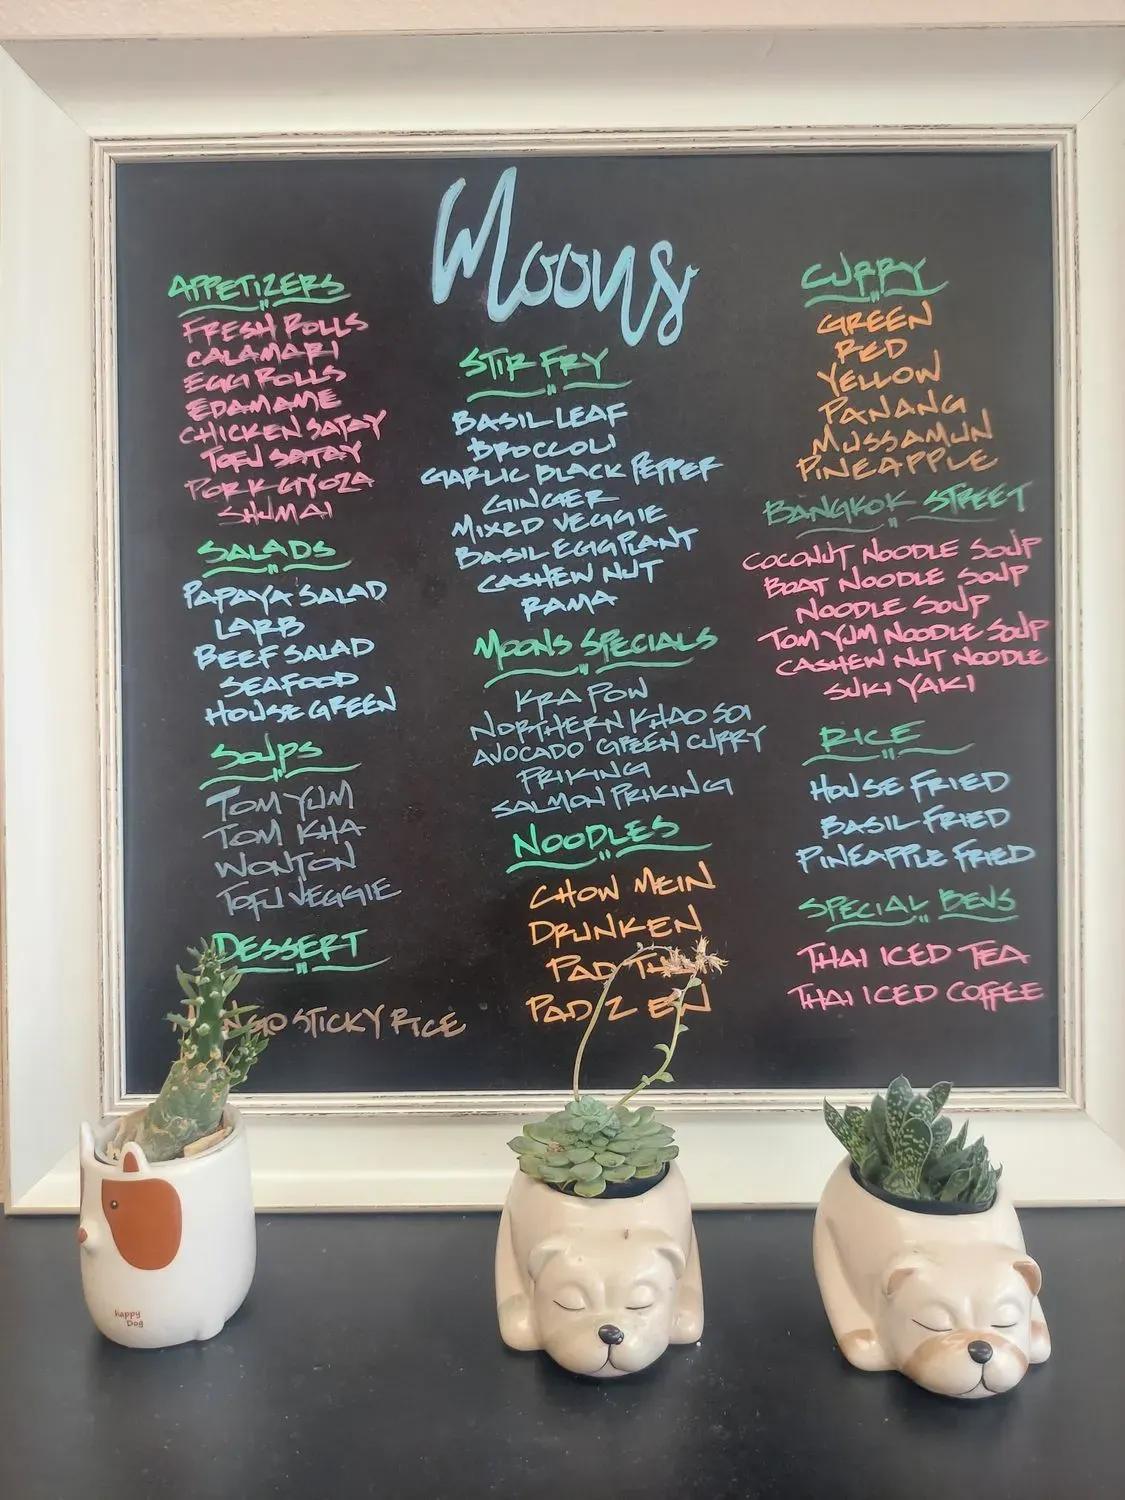 Moons
APPETIZERS
FRESH ROLLS
CALAMARI
EGG ROLLS
EDAMAME
CHICKEN SATAY
TOFU SATAY
PORK GYOZA
SHUMAI
SALADS
PAPAYA SALAD
LARB
BEEF SALAD
SEAFOOD
HOUSE GREEN
SOUPS
TOM YUM
TOM KHA
WONTON
TOFU VEGGIE
DESSERT
STICKY RICE
STIR FRY
BASIL LEAF
BROCCOLI
GARLIC BLACK PEPPER
GINGER
MIXED VEGGIE
BASIL EGGPLANT
CASHEW NUT
RAMA
MOONS SPECIALS
KRA POW
NORTHERN KHAO SOI
AVOCADO GREEN CURRY
PRIKING
SALMON PRIKING
NOODLES
CHOW MEIN
DRUNKEN
PAD
PAD
CURRY
GREEN
RED
YELLOW
PANANG
MUSSAMUN
PINEAPPLE
BANGKOK STREET
COCONUT NOODLE SOUP
BOAT NOODLE SOUP
NOODLE SOUP
TOM YUM NOODLE SOUP
CASHEW NUT NOODLE
SUKI YAKI
RICE
HOUSE FRIED
BASIL FRIED
PINEAPPLE FRIED
SPECIAL BEVS
THAI ICED TEA
THAI ICED COFFEE
happy
Dog